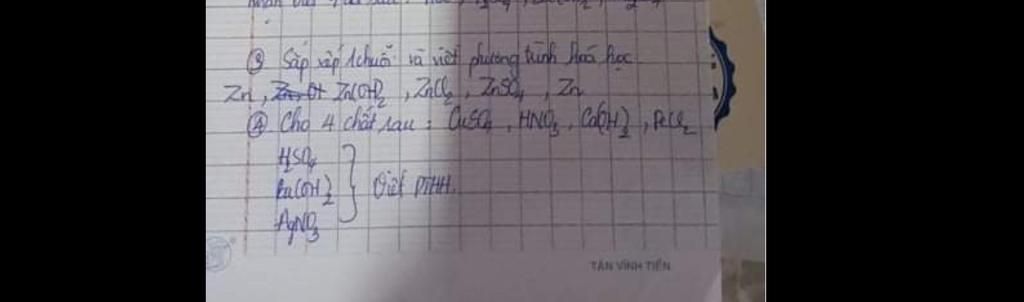 ③ Sắp xếp 1 chuỗi và viết phương trình hoá học
Zn, Zn(OH)2, ZnCl2, ZnSO4, Zn
④ Cho 4 chất sau: CuSO4, HNO3, Ca(OH)2, FeCl2
H2SO4
Ba(OH)2 } Viết PTHH.
AgNO3
TÂN VĨNH TIẾN